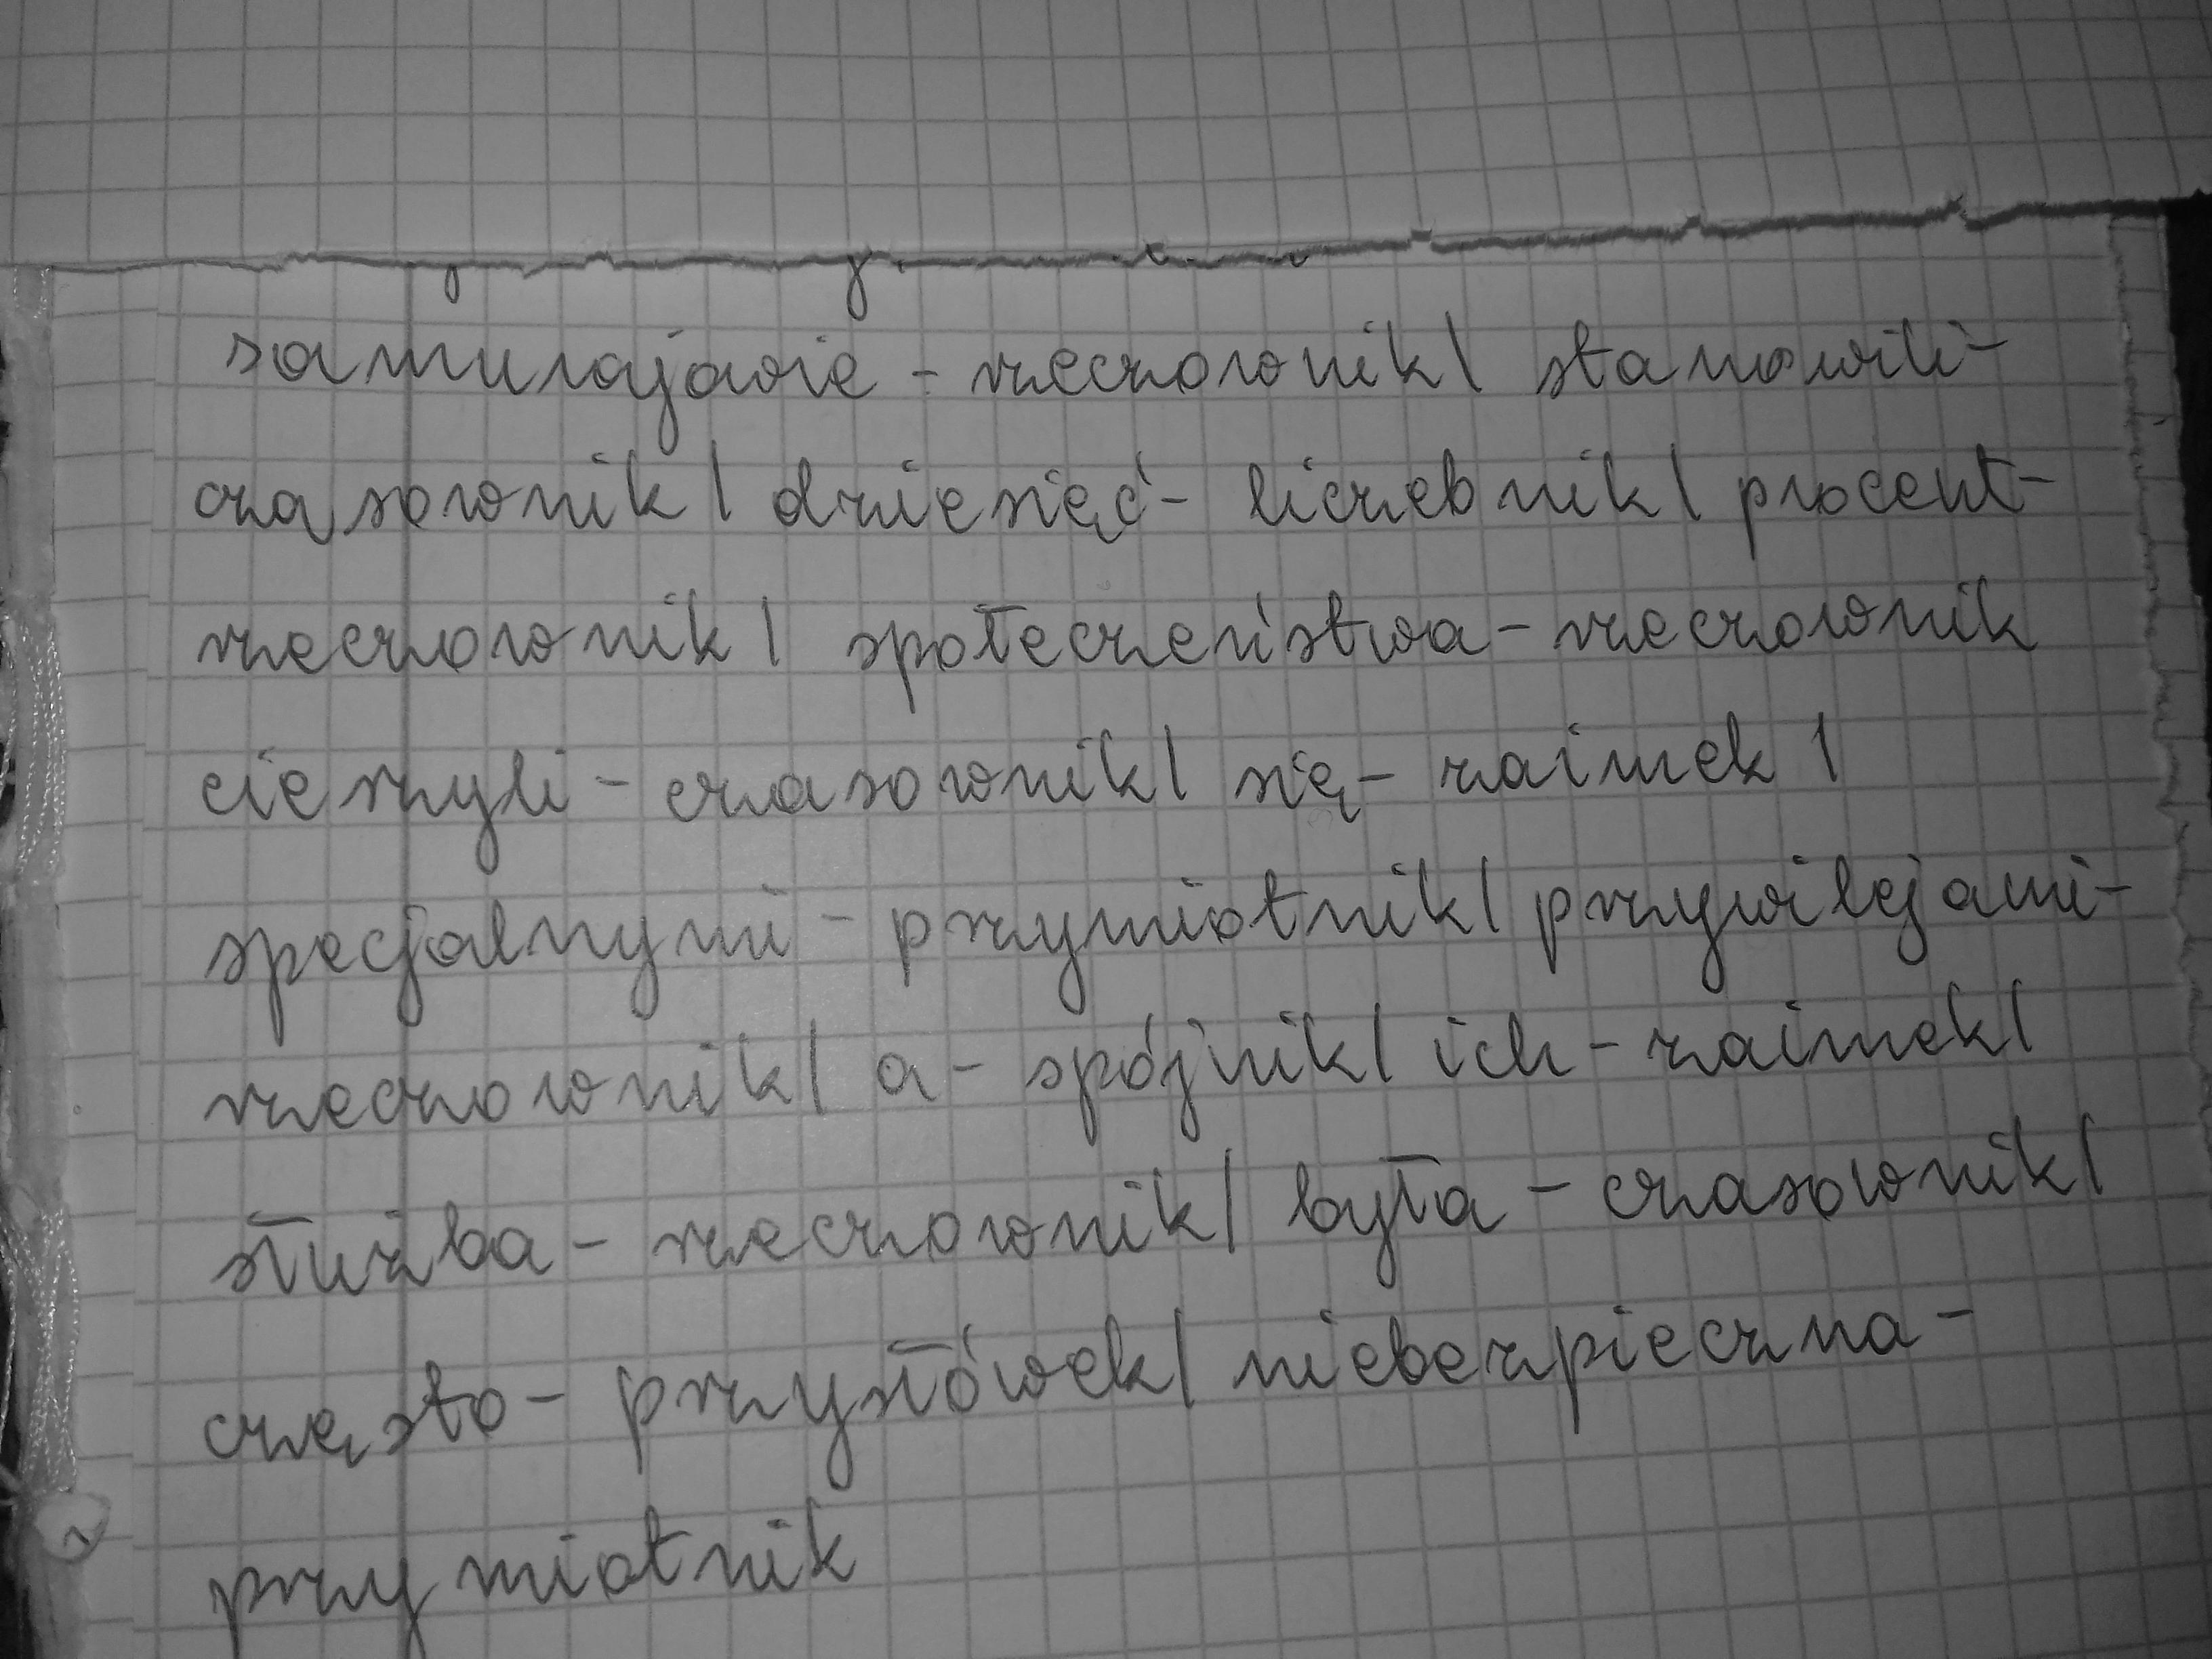 samurajowie - rzeczownik | stanowili -
czasownik | dziesięć - liczebnik | procent -
rzeczownik | społeczeństwa - rzeczownik
cieszyli - czasownik | się - zaimek |
specjalnymi - przymiotnik | przywilejami -
rzeczownik | a - spójnik | ich - zaimek |
służba - rzeczownik | była - czasownik |
często - przysłówek | niebezpieczna -
przymiotnik